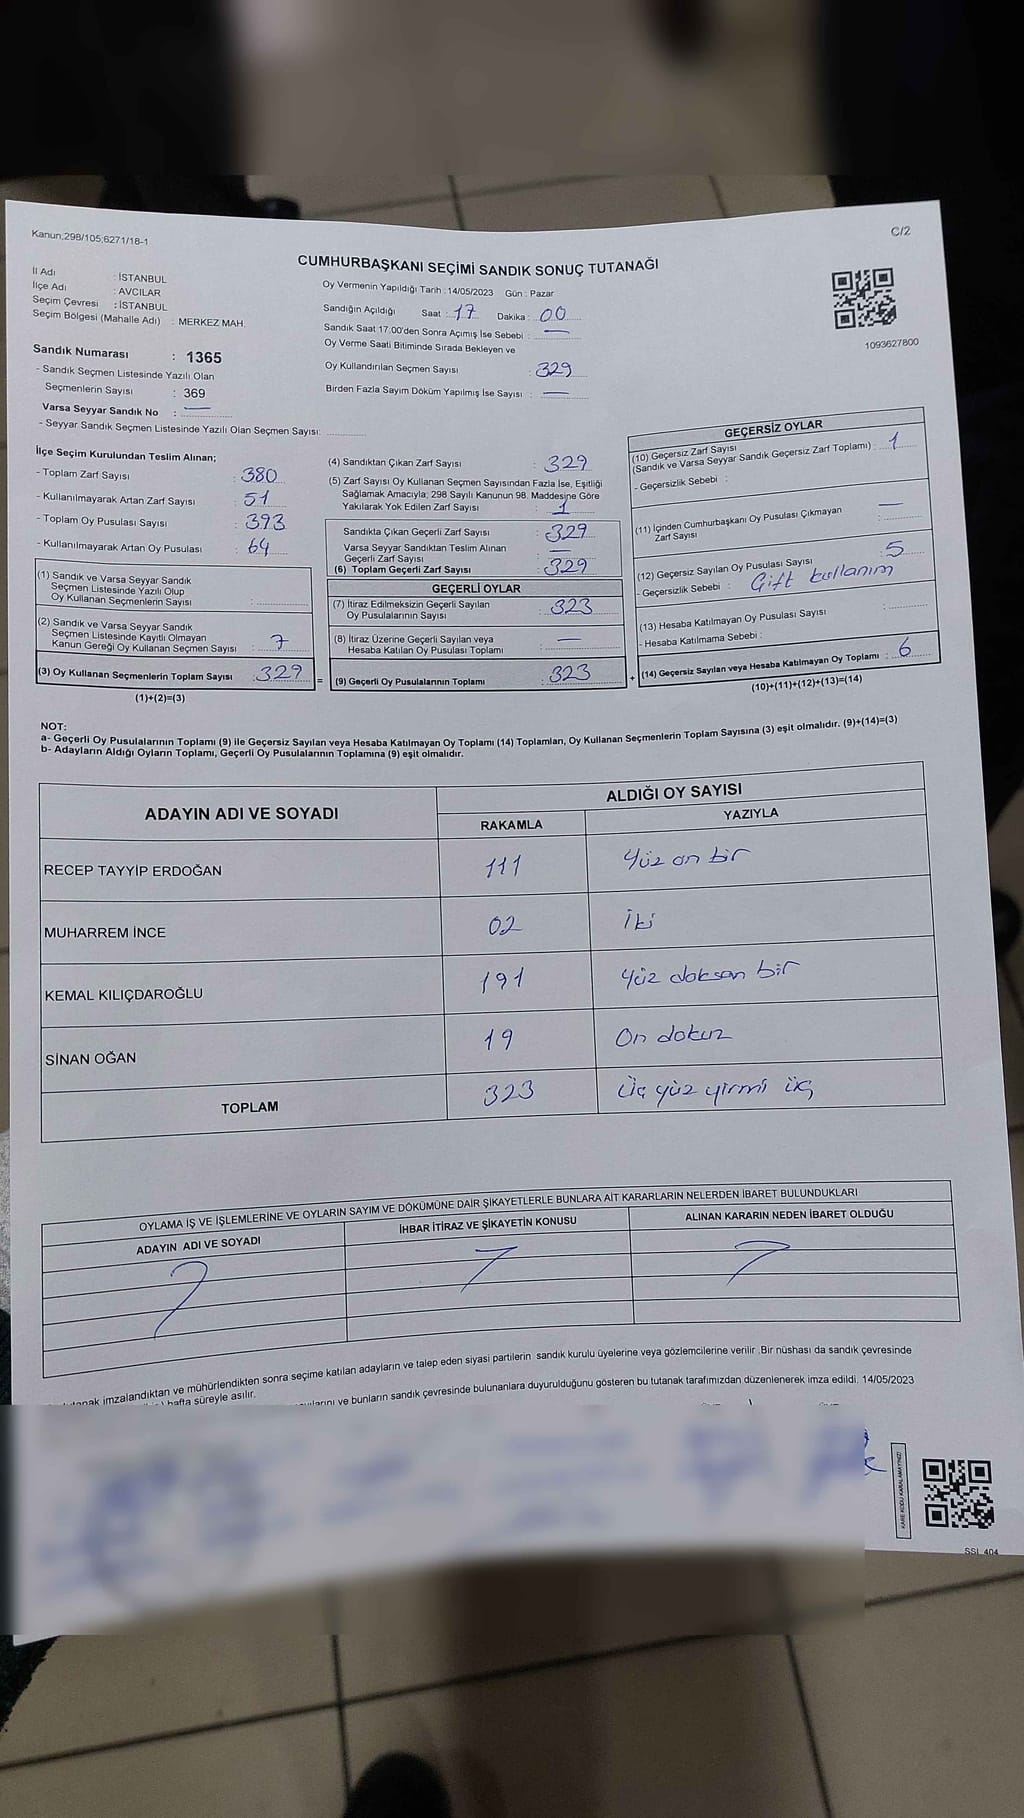 Kanun;298/105;6271/18-1
C/2
CUMHURBAŞKANI SEÇİMİ SANDIK SONUÇ TUTANAĞI
İl Adı : İSTANBUL
İlçe Adı : AVCILAR
Seçim Çevresi : İSTANBUL
Seçim Bölgesi (Mahalle Adı) : MERKEZ MAH.
Oy Vermenin Yapıldığı Tarih : 14/05/2023 Gün : Pazar
Sandığın Açıldığı Saat : 17 Dakika : 00
Sandık Saat 17.00'den Sonra Açımış İse Sebebi : —
Oy Verme Saati Bitiminde Sırada Bekleyen ve
Oy Kullandırılan Seçmen Sayısı : 329
Birden Fazla Sayım Döküm Yapılmış İse Sayısı : —
1093627800
Sandık Numarası : 1365
- Sandık Seçmen Listesinde Yazılı Olan
Seçmenlerin Sayısı : 369
Varsa Seyyar Sandık No : —
- Seyyar Sandık Seçmen Listesinde Yazılı Olan Seçmen Sayısı:
İlçe Seçim Kurulundan Teslim Alınan;
- Toplam Zarf Sayısı : 380
- Kullanılmayarak Artan Zarf Sayısı : 51
- Toplam Oy Pusulası Sayısı : 393
- Kullanılmayarak Artan Oy Pusulası : 64
(1) Sandık ve Varsa Seyyar Sandık
Seçmen Listesinde Yazılı Olup
Oy Kullanan Seçmenlerin Sayısı :
(2) Sandık ve Varsa Seyyar Sandık
Seçmen Listesinde Kayıtlı Olmayan
Kanun Gereği Oy Kullanan Seçmen Sayısı : 7
(3) Oy Kullanan Seçmenlerin Toplam Sayısı : 329 =
(1)+(2)=(3)
(4) Sandıktan Çıkan Zarf Sayısı : 329
(5) Zarf Sayısı Oy Kullanan Seçmen Sayısından Fazla İse, Eşitliği
Sağlamak Amacıyla; 298 Sayılı Kanunun 98. Maddesine Göre
Yakılarak Yok Edilen Zarf Sayısı : 1
Sandıkta Çıkan Geçerli Zarf Sayısı : 329
Varsa Seyyar Sandıktan Teslim Alınan
Geçerli Zarf Sayısı : —
(6) Toplam Geçerli Zarf Sayısı : 329
GEÇERLİ OYLAR
(7) İtiraz Edilmeksizin Geçerli Sayılan
Oy Pusulalarının Sayısı : 323
(8) İtiraz Üzerine Geçerli Sayılan veya
Hesaba Katılan Oy Pusulası Toplamı : —
(9) Geçerli Oy Pusulalarının Toplamı : 323 +
GEÇERSİZ OYLAR
(10) Geçersiz Zarf Sayısı
(Sandık ve Varsa Seyyar Sandık Geçersiz Zarf Toplamı) : 1
- Geçersizlik Sebebi :
(11) İçinden Cumhurbaşkanı Oy Pusulası Çıkmayan
Zarf Sayısı : —
(12) Geçersiz Sayılan Oy Pusulası Sayısı : 5
- Geçersizlik Sebebi : Çift kullanım
(13) Hesaba Katılmayan Oy Pusulası Sayısı :
- Hesaba Katılmama Sebebi :
(14) Geçersiz Sayılan veya Hesaba Katılmayan Oy Toplamı : 6
(10)+(11)+(12)+(13)=(14)
NOT:
a- Geçerli Oy Pusulalarının Toplamı (9) ile Geçersiz Sayılan veya Hesaba Katılmayan Oy Toplamı (14) Toplamları, Oy Kullanan Seçmenlerin Toplam Sayısına (3) eşit olmalıdır. (9)+(14)=(3)
b- Adayların Aldığı Oyların Toplamı, Geçerli Oy Pusulalarının Toplamına (9) eşit olmalıdır.
ADAYIN ADI VE SOYADI
ALDIĞI OY SAYISI
RAKAMLA YAZIYLA
RECEP TAYYİP ERDOĞAN 111 Yüz on bir
MUHARREM İNCE 02 İki
KEMAL KILIÇDAROĞLU 191 Yüz doksan bir
SİNAN OĞAN 19 On dokuz
TOPLAM 323 Üç yüz yirmi üç
OYLAMA İŞ VE İŞLEMLERİNE VE OYLARIN SAYIM VE DÖKÜMÜNE DAİR ŞİKAYETLERLE BUNLARA AİT KARARLARIN NELERDEN İBARET BULUNDUKLARI
ADAYIN ADI VE SOYADI İHBAR İTİRAZ VE ŞİKAYETİN KONUSU ALINAN KARARIN NEDEN İBARET OLDUĞU
imzalandıktan ve mühürlendikten sonra seçime katılan adayların ve talep eden siyasi partilerin sandık kurulu üyelerine veya gözlemcilerine verilir .Bir nüshası da sandık çevresinde
hafta süreyle asılır.
ve bunların sandık çevresinde bulunanlara duyurulduğunu gösteren bu tutanak tarafımızdan düzenlenerek imza edildi. 14/05/2023
KARE KODU KARALAMAYINIZ!
SSI 404